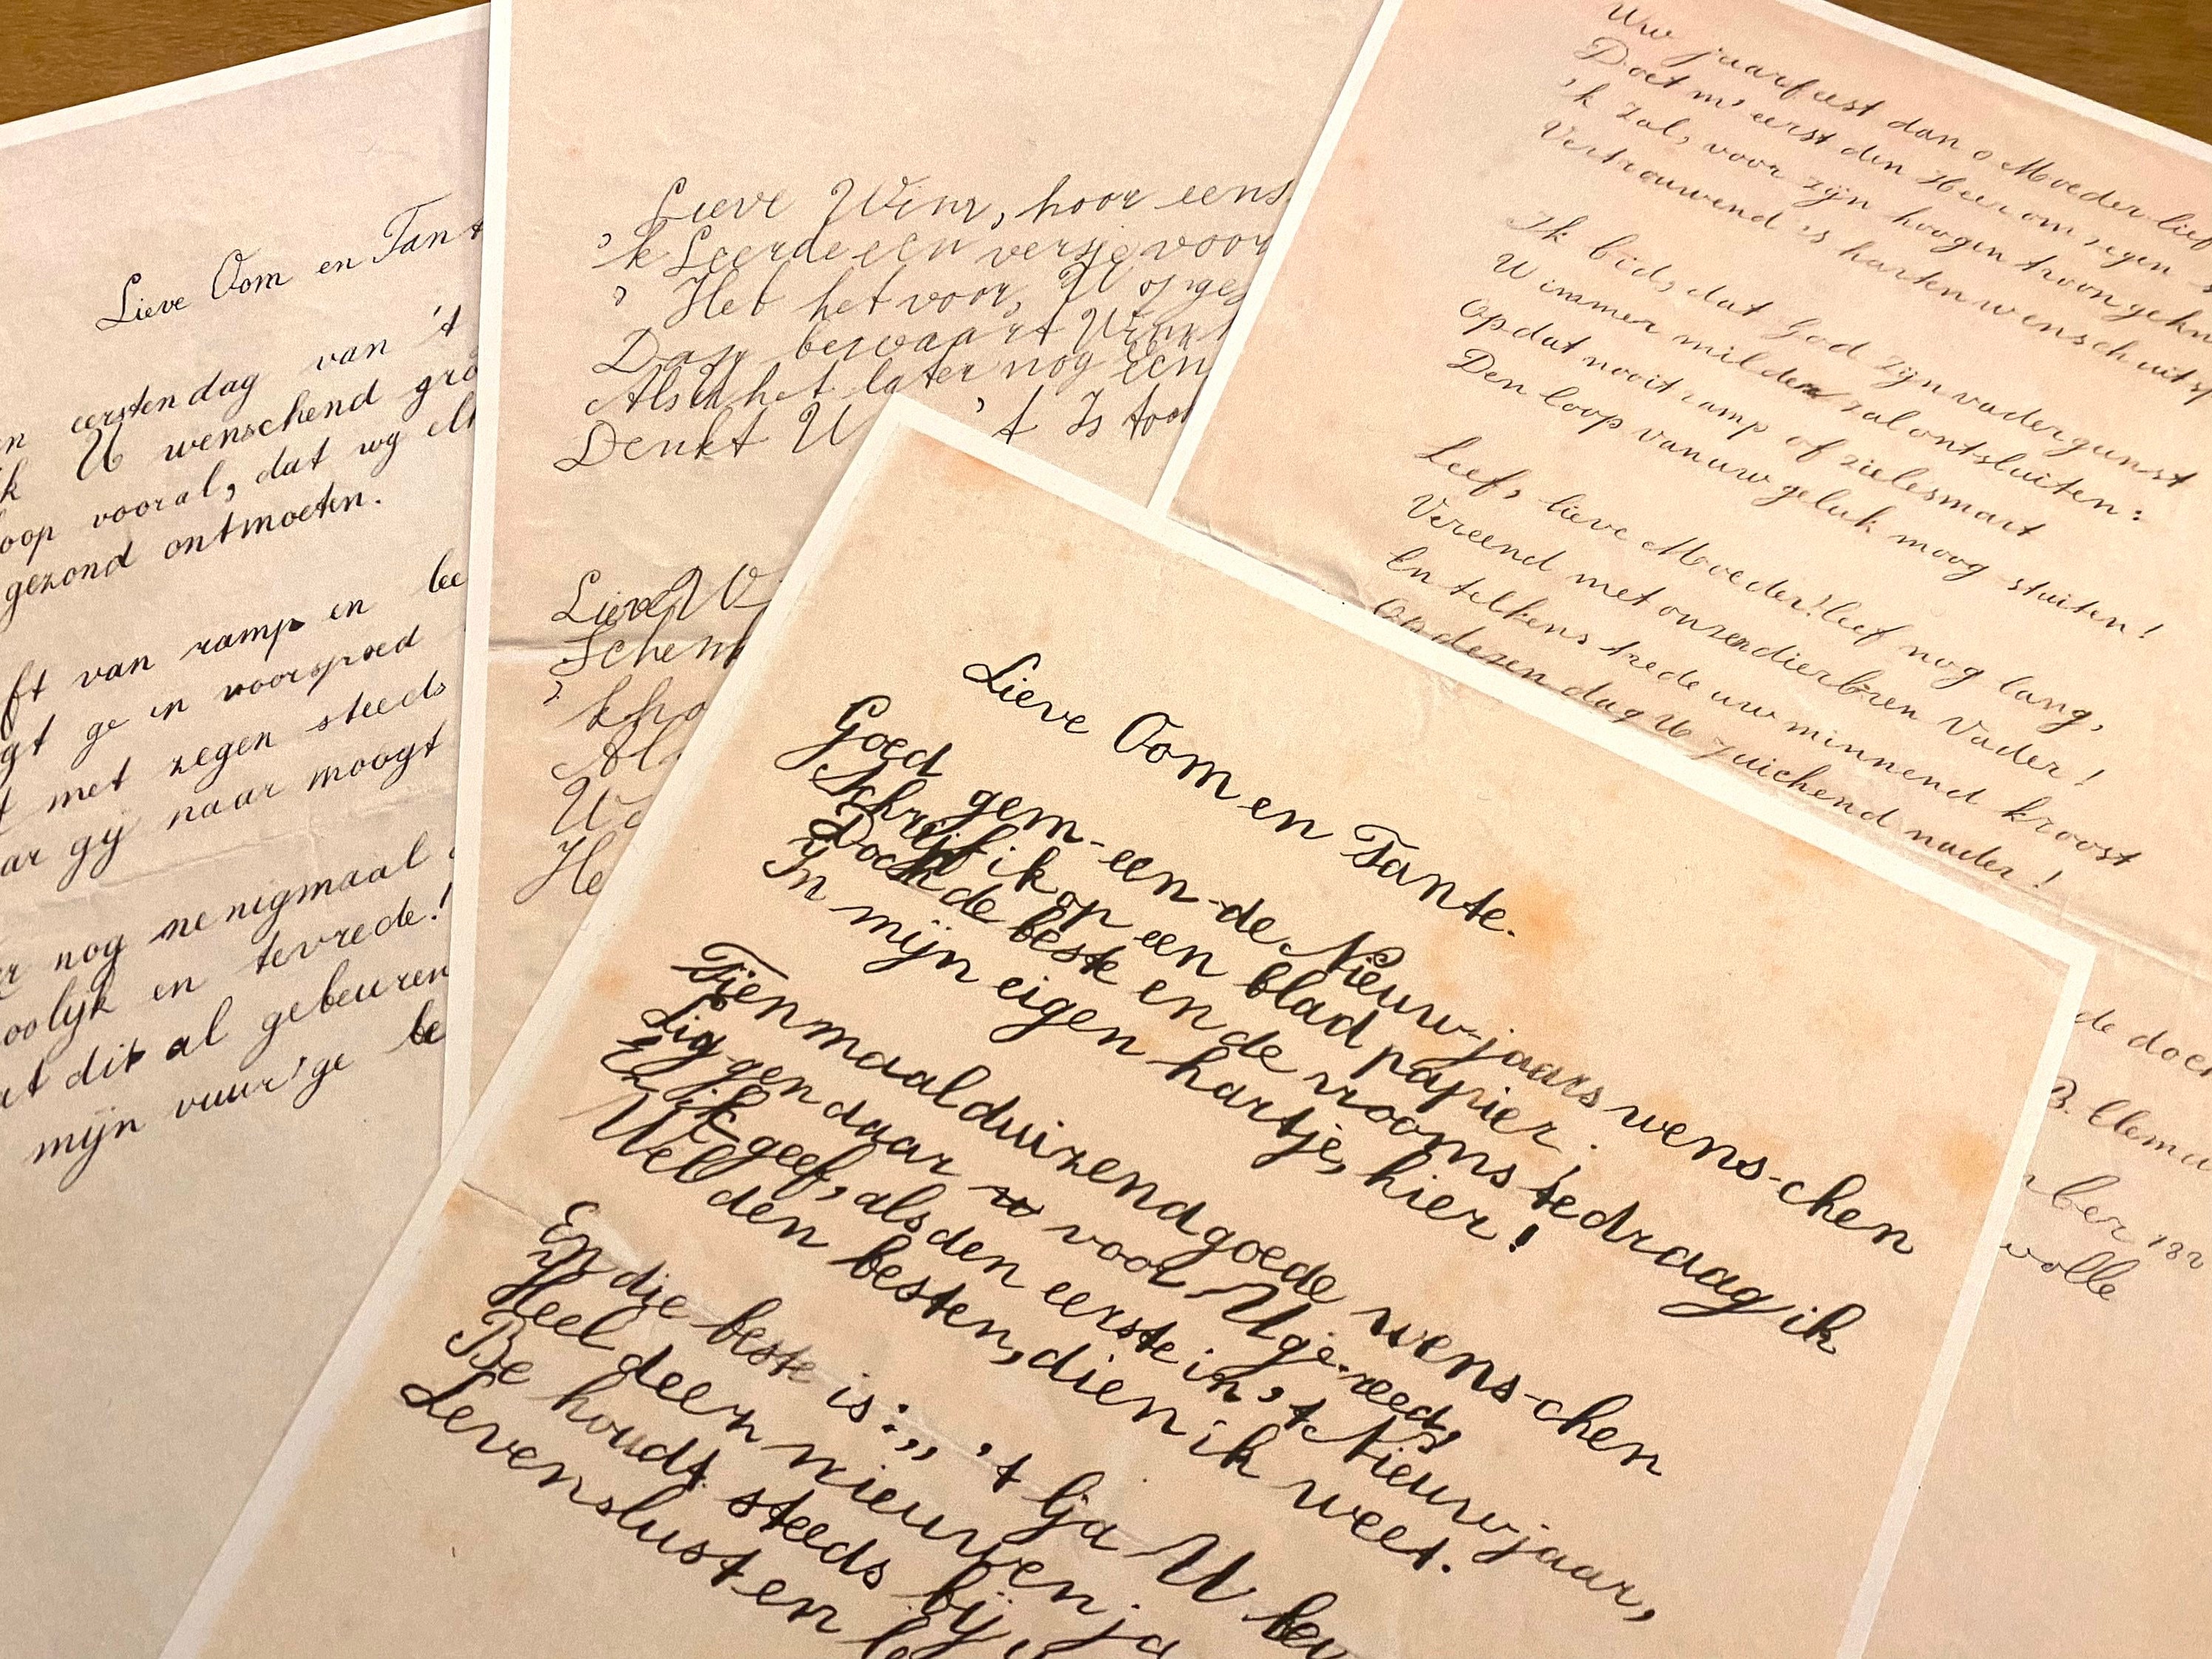 Lieve Oom en Tant
eersten dag van 't
k U wenschend gro
oop vooral, dat wy elk
gezond ontmoeten.
ft van ramp en lee
gt ge in voorspoed
t met zegen steeds
ar gy naar moogt
r nog menigmaal
oolyk en tevrede!
at dit al gebeuren
mijn vuur'ge be
Lieve Wim, hoor eens
'k Leerde een versje voor
'Heb het voor U opges
Dan bewaart
Als U het later nog een
Denkt U 't Is too
Lieve W
Schenk
'k ho
Al
He
Uw jaarfeest dan o Moeder lief
Doet m' eerst den Heer om zegen
'k zal, voor zijn hoogen troon gekn
Vertrouwend 's harten wensch uits
Ik bid, dat God zijn vadergunst
U immer milder zal ontsluiten:
Opdat nooit ramp of zielesmart
Den loop van uw geluk moog stuiten!
Leef, lieve Moeder! leef nog lang,
Vereend met onzen dierbren Vader!
En telkens trede uw minnend kroost
Op dezen dag U juichend nader!
de doe
B. Clem
ber 18
wolle
Lieve Oom en Tante.
Goed gem-een-de Nieuw-jaars wens-chen
Schrijf ik op een blad papier;
Doch de beste en de vrooms te draag ik
In mijn eigen hartje, hier!
Tienmaal duizend goede wens-chen
Lig-gen daar voor U ge-reed,
En ik geef, als den eerste in 't Nieuwjaar,
Wel den besten, dien ik weet.
En die beste is: „'t Ga U
Heel deez' nieuwen ja
Be houdt steeds bij
Levenslust en